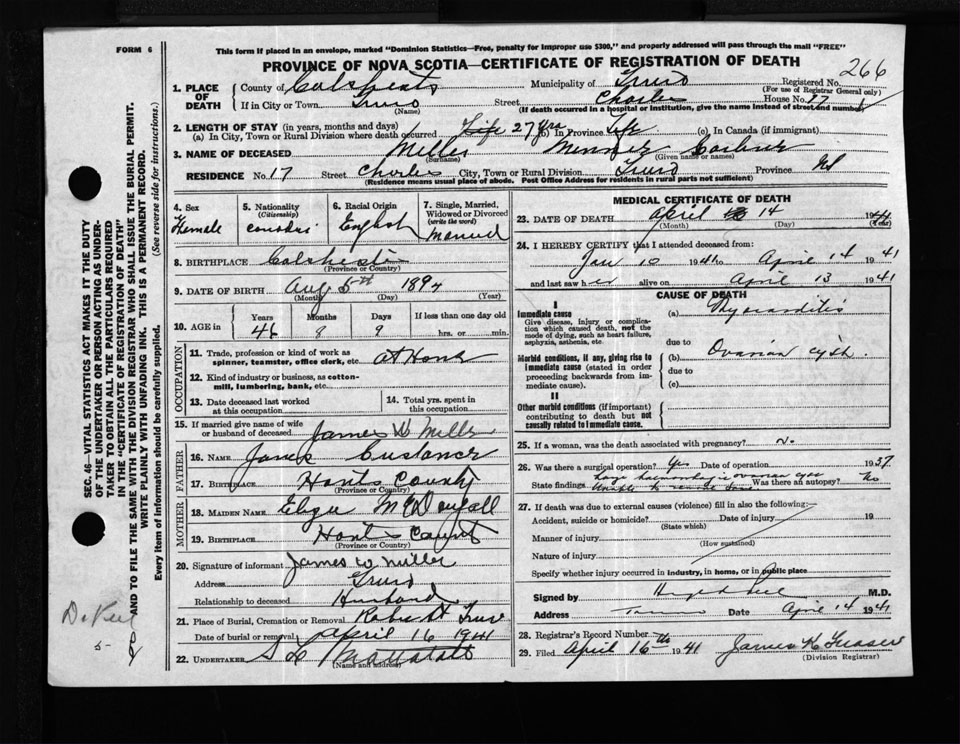 FORM 6
This form if placed in an envelope, marked "Dominion Statistics—Free, penalty for improper use $300," and properly addressed will pass through the mail "FREE"
PROVINCE OF NOVA SCOTIA—CERTIFICATE OF REGISTRATION OF DEATH
266
1. PLACE OF DEATH County of Municipality of Truro Registered No. (For use of Registrar General only)
If in City or Town Truro (Name) Street Charles House No. 17
(If death occurred in a hospital or institution, give the name instead of street and number)
2. LENGTH OF STAY (in years, months and days)
(a) In City, Town or Rural Division where death occurred Life 27 yrs (b) In Province Life (c) In Canada (if immigrant)
3. NAME OF DECEASED (Surname) (Given name or names)
RESIDENCE No. 17 Street Charles City, Town or Rural Division Truro Province NS
(Residence means usual place of abode. Post Office Address for residents in rural parts not sufficient)
4. Sex Female
5. Nationality (Citizenship)
6. Racial Origin English
7. Single, Married, Widowed or Divorced (write the word) Married
8. BIRTHPLACE Colchester (Province or County)
9. DATE OF BIRTH Aug 5th 1894 (Month) (Day) (Year)
10. AGE in Years 46 Months 8 Days 9 If less than one day old hrs. or min.
OCCUPATION
11. Trade, profession or kind of work as spinner, teamster, office clerk, etc. At Home
12. Kind of industry or business, as cotton-mill, lumbering, bank, etc.
13. Date deceased last worked at this occupation
14. Total yrs. spent in this occupation
15. If married give name of wife or husband of deceased James W Mills
FATHER
16. Name
17. Birthplace Hants County (Province or County)
MOTHER
18. Maiden Name McDougall
19. Birthplace Hants County (Province or County)
20. Signature of informant James W. Miller
Address Truro
Relationship to deceased Husband
21. Place of Burial, Cremation or Removal Truro
Date of burial or removal April 16 1941
22. Undertaker (Name and address)
MEDICAL CERTIFICATE OF DEATH
23. DATE OF DEATH April 14 1941 (Month) (Day) (Year)
24. I HEREBY CERTIFY that I attended deceased from:
Jan 10 1941 to April 14 1941
and last saw her alive on April 13 1941
CAUSE OF DEATH
I
Immediate cause
Give disease, injury or complication which caused death, not the mode of dying, such as heart failure, asphyxia, asthenia, etc.
(a) Myocarditis
due to
Morbid conditions, if any, giving rise to immediate cause (stated in order proceeding backwards from immediate cause).
(b) Ovarian cyst.
due to
(c)
II
Other morbid conditions (if important) contributing to death but not causally related to immediate cause.
25. If a woman, was the death associated with pregnancy? no
26. Was there a surgical operation? Yes Date of operation 1937
State findings large ovarian Was there an autopsy? No
27. If death was due to external causes (violence) fill in also the following:—
Accident, suicide or homicide? Date of injury 19
(State which)
Manner of injury
(How sustained)
Nature of injury
Specify whether injury occurred in industry, in home, or in public place
Signed by M.D.
Address Truro Date April 14 1941
28. Registrar's Record Number
29. Filed April 16th 1941 James K Fraser
(Division Registrar)
SEC. 46—VITAL STATISTICS ACT MAKES IT THE DUTY
OF THE UNDERTAKER OR PERSON ACTING AS UNDER-
TAKER TO OBTAIN ALL THE PARTICULARS REQUIRED
IN THE "CERTIFICATE OF REGISTRATION OF DEATH"
AND TO FILE THE SAME WITH THE DIVISION REGISTRAR WHO SHALL ISSUE THE BURIAL PERMIT.
WRITE PLAINLY WITH UNFADING INK. THIS IS A PERMANENT RECORD.
Every item of information should be carefully supplied. (See reverse side for instructions.)
5-